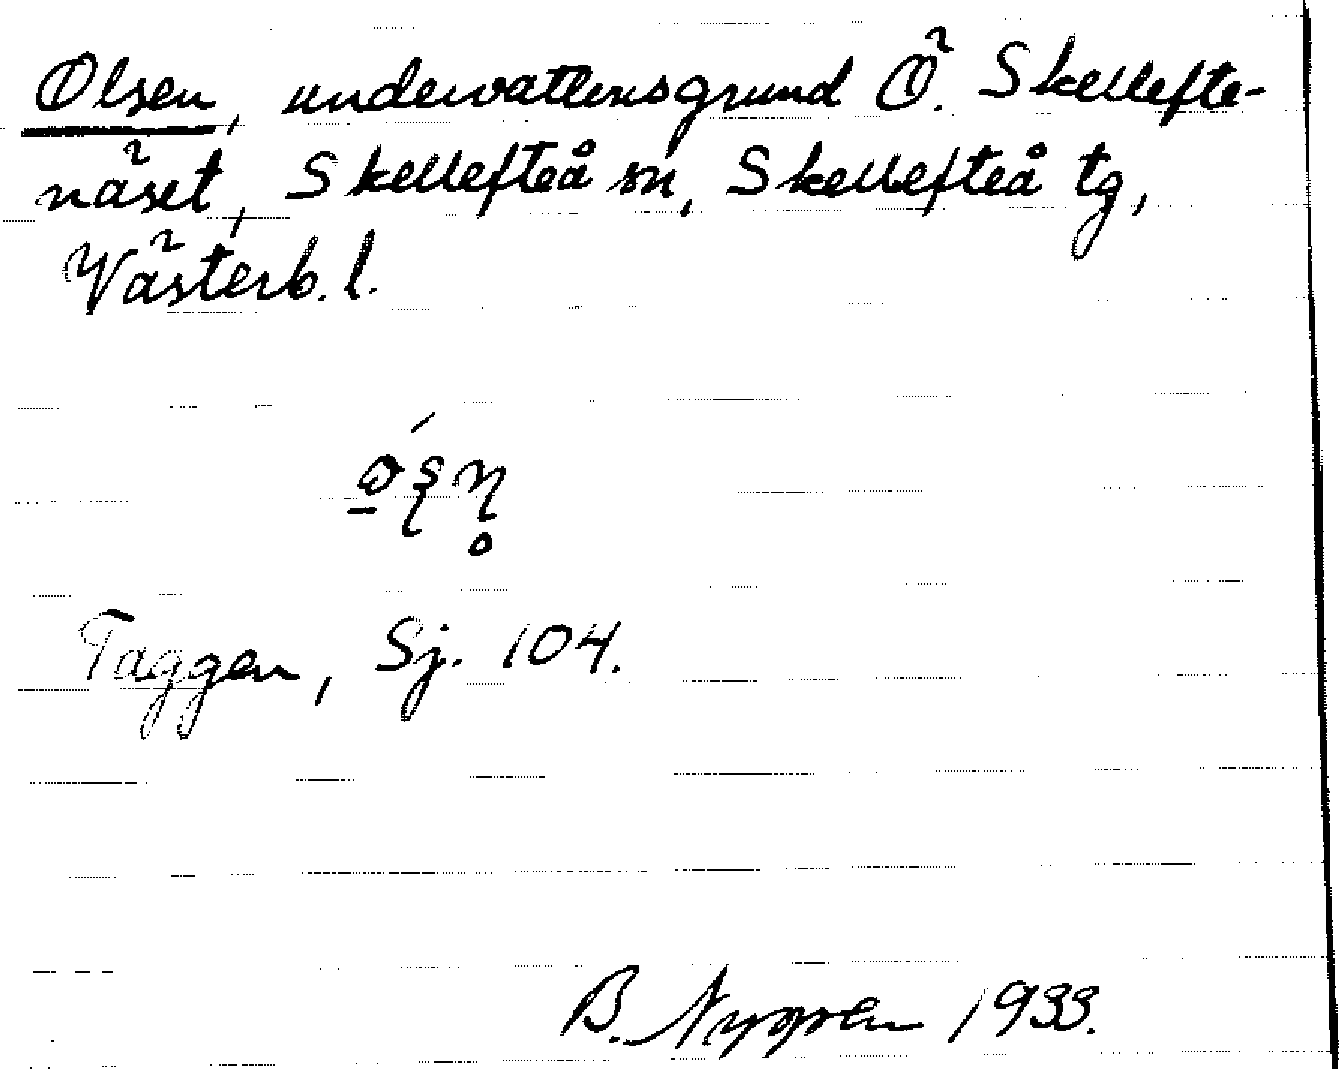 Olsen, undervattensgrund Ö. Skellefte-
näset, Skellefteå sn, Skellefteå tg,
Västerb. l.
Taggen, Sj. 104.
B. Nygren 1933.